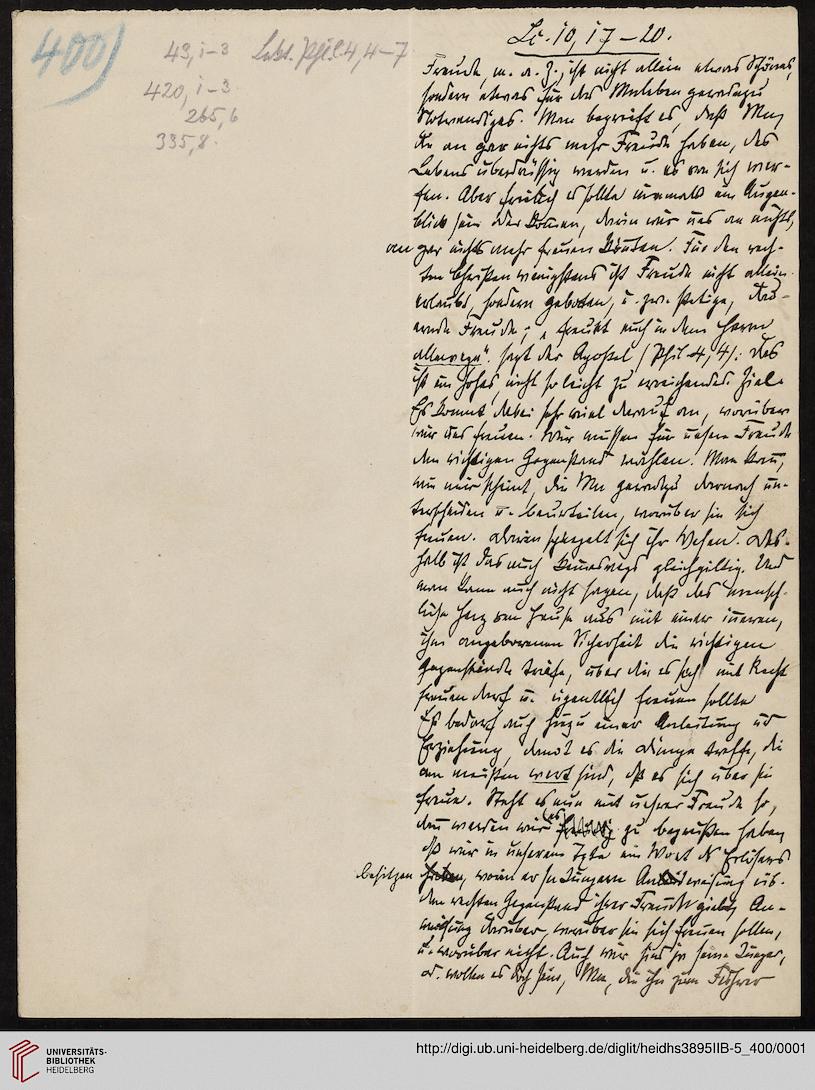 400)
43, 1–3 Lekt. Phil. 4, 4–7
420, 1–3.
265, 6
335, 8.
Lc. 10, 17–20.
Freude, m. a. Z., ist nicht allein etwas Schönes,
sondern etwas für das Mnleben geradezu
Notwendiges. Man begreift es, daß Mn,
die an gar nichts mehr Freude haben, des
Lebens überdrüssig werden u. es von sich wer-
fen. Aber freilich es sollte niemals ein Augen-
blick sein oder kommen, darin wir uns an nichts,
an gar nichts mehr freuen könnten. Für den rech-
ten Christen wenigstens ist Freude nicht allein
erlaubt, sondern geboten, u. zw. stetige, dau-
ernde Freude; „freuet euch in dem Herrn
allewege“. sagt der Apostel (Phil 4, 4). Das
ist ein hohes, nicht so leicht zu erreichendes Ziel.
Es kommt dabei sehr viel darauf an, worüber
wir uns freuen. Wir müssen für unsere Freude
den richtigen Gegenstand wählen. Man kann,
wie mir scheint, die Mn geradezu darnach un-
terscheiden u. beurteilen, worüber sie sich
freuen. Darin spiegelt sich ihr Wesen. Des-
halb ist das auch keineswegs gleichgiltig. Und
man kann auch nicht sagen, daß das mensch-
liche Herz von Hause aus mit einer inneren,
ihm angeborenen Sicherheit die richtigen
Gegenstände träfe, über die es sich mit Recht
freuen darf u. eigentlich freuen sollte
Es bedarf auch hiezu einer Anleitung ud
Erziehung, damit es die Dinge treffe, die
am meisten wert sind, dß es sich über sie
freue. Steht es nun mit unserer Freude so,
dann werden wir (es) zu begrüßen haben
dß wir in unserem Txte ein Wort ds Erlösers
besitzen, worin er sn Jüngern Anweisung üb.
den rechten Gegenstand ihrer Freude giebt, An-
weisung darüber, worüber sie sich freuen sollen,
u. worüber nicht. Auch wir sind ja seine Jünger,
od. wollen es doch sein, Mn, die ihn zum Führer
UNIVERSITÄTS-
BIBLIOTHEK
HEIDELBERG
http://digi.ub.uni-heidelberg.de/diglit/heidhs3895IIB-5_400/0001